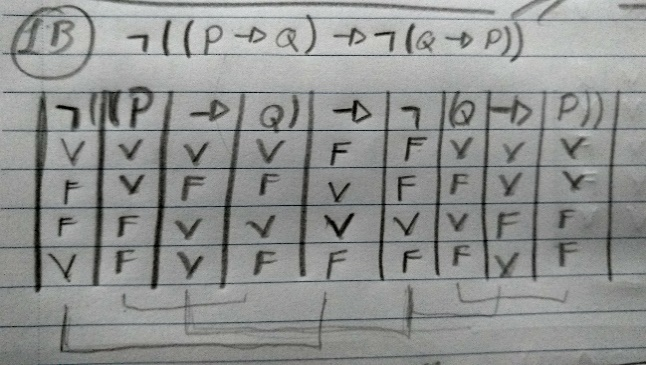 1B ¬((P→Q)→¬(Q→P))
¬((P → Q) → ¬ (Q → P))
V V V V F F V V V
F V F F V F F V V
F F V V V V V F F
V F V F F F F V F